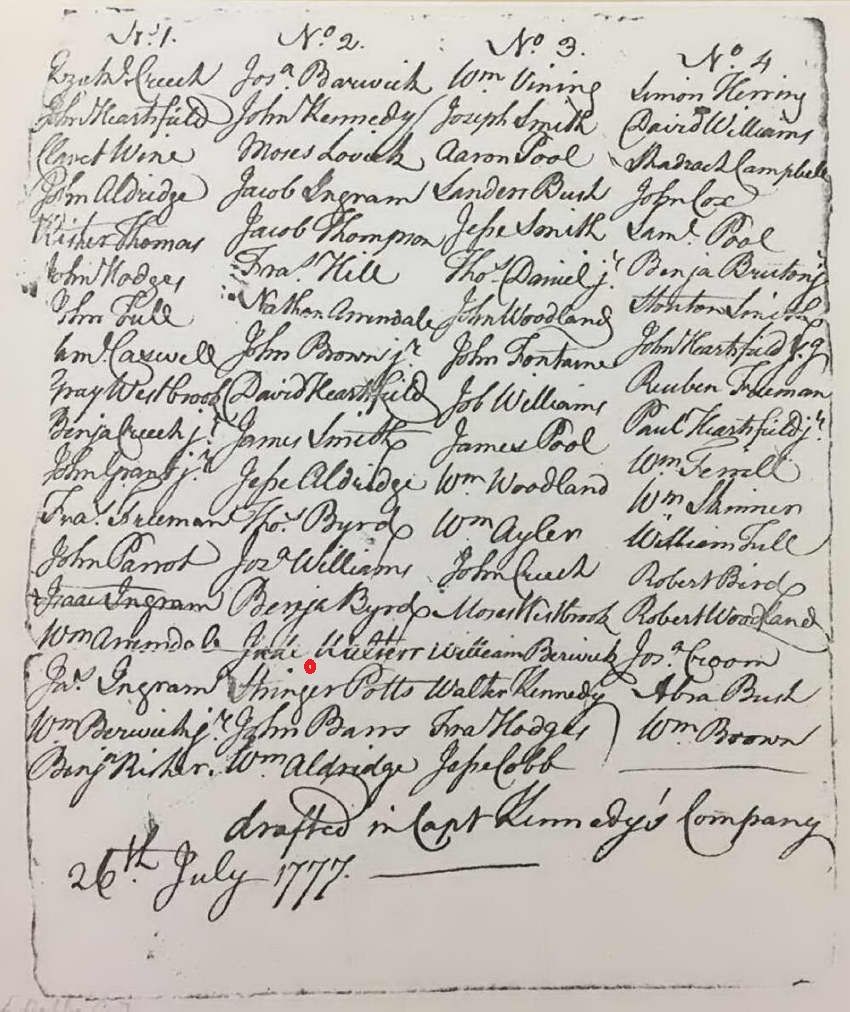 No. 1.
Ezekl. Creech
John Hearthfield
Claret Wine
John Aldridge
Kisher Thomas
John Hodges
John Tull
Saml. Caswell
Gray Westbrook
Benja Creech jr.
John Grant jr.
Fras. Freeman
John Parrot
Isaac Ingram
Wm Arrendale
Jas. Ingram
Wm Berwick jr.
Benja Kisher.
No 2.
Josa. Barwick
John Kennedy
Moses Lovick
Jacob Ingram
Jacob Thompson
Fras. Hill
Nathan Arrendale
John Brown jr.
David Hearthfield
James Smith
Jesse Aldridge
Thos. Byrd
Josa Williams
Benja Byrd
Stringer Potts
John Barrs
Wm Aldridge
No 3.
Wm Vining
Joseph Smith
Aaron Pool
Sanders Bush
Jesse Smith
Thos. Daniel jr.
John Woodland
John Fontaine
Job Williams
James Pool
Wm Woodland
Wm Ayler
John Creech
Moses Westbrook
William Berwick
Walter Kennedy
Fra Hodges
Jesse Cobb
No. 4
Simon Herring
David Williams
Shadrach Campbell
John Cox
Saml. Pool
Benja Bruton jr
Stonton Smith
John Hearthfield
Reuben Freeman
Paul Hearthfield jr.
Wm Ferrell
Wm Skinner
William Tull
Robert Bird
Robert Woodland
Josa. Croom
Abra Bush
Wm. Brown
drafted in Capt Kennedy's Company
26th. July 1777.